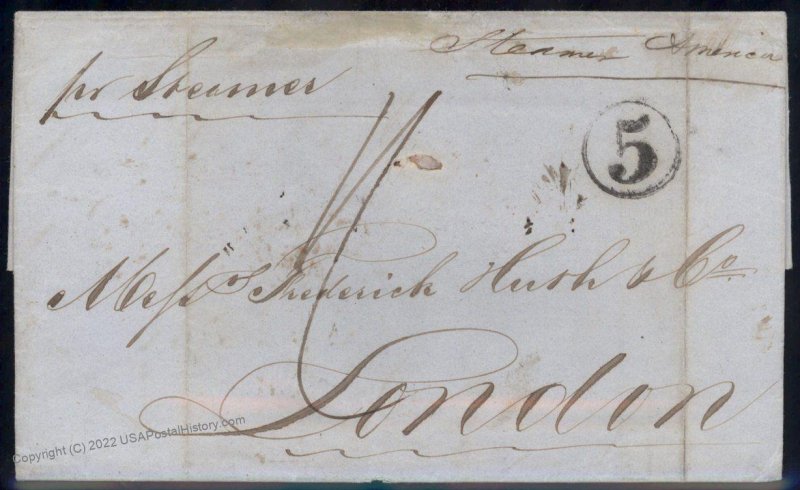 Steamer America
pr Steamer
5
Messrs Frederick Huth & Co
London
Copyright (C) 2022 USAPostalHistory.com